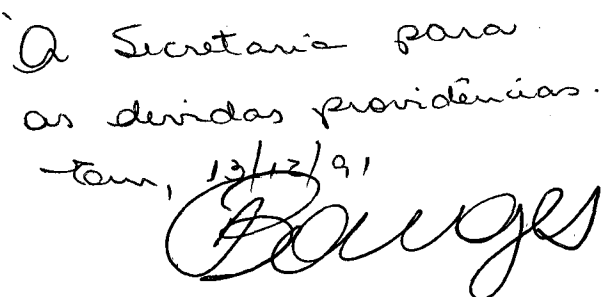 À Secretaria para
as devidas providências.
Em, 13/12/91
Borges